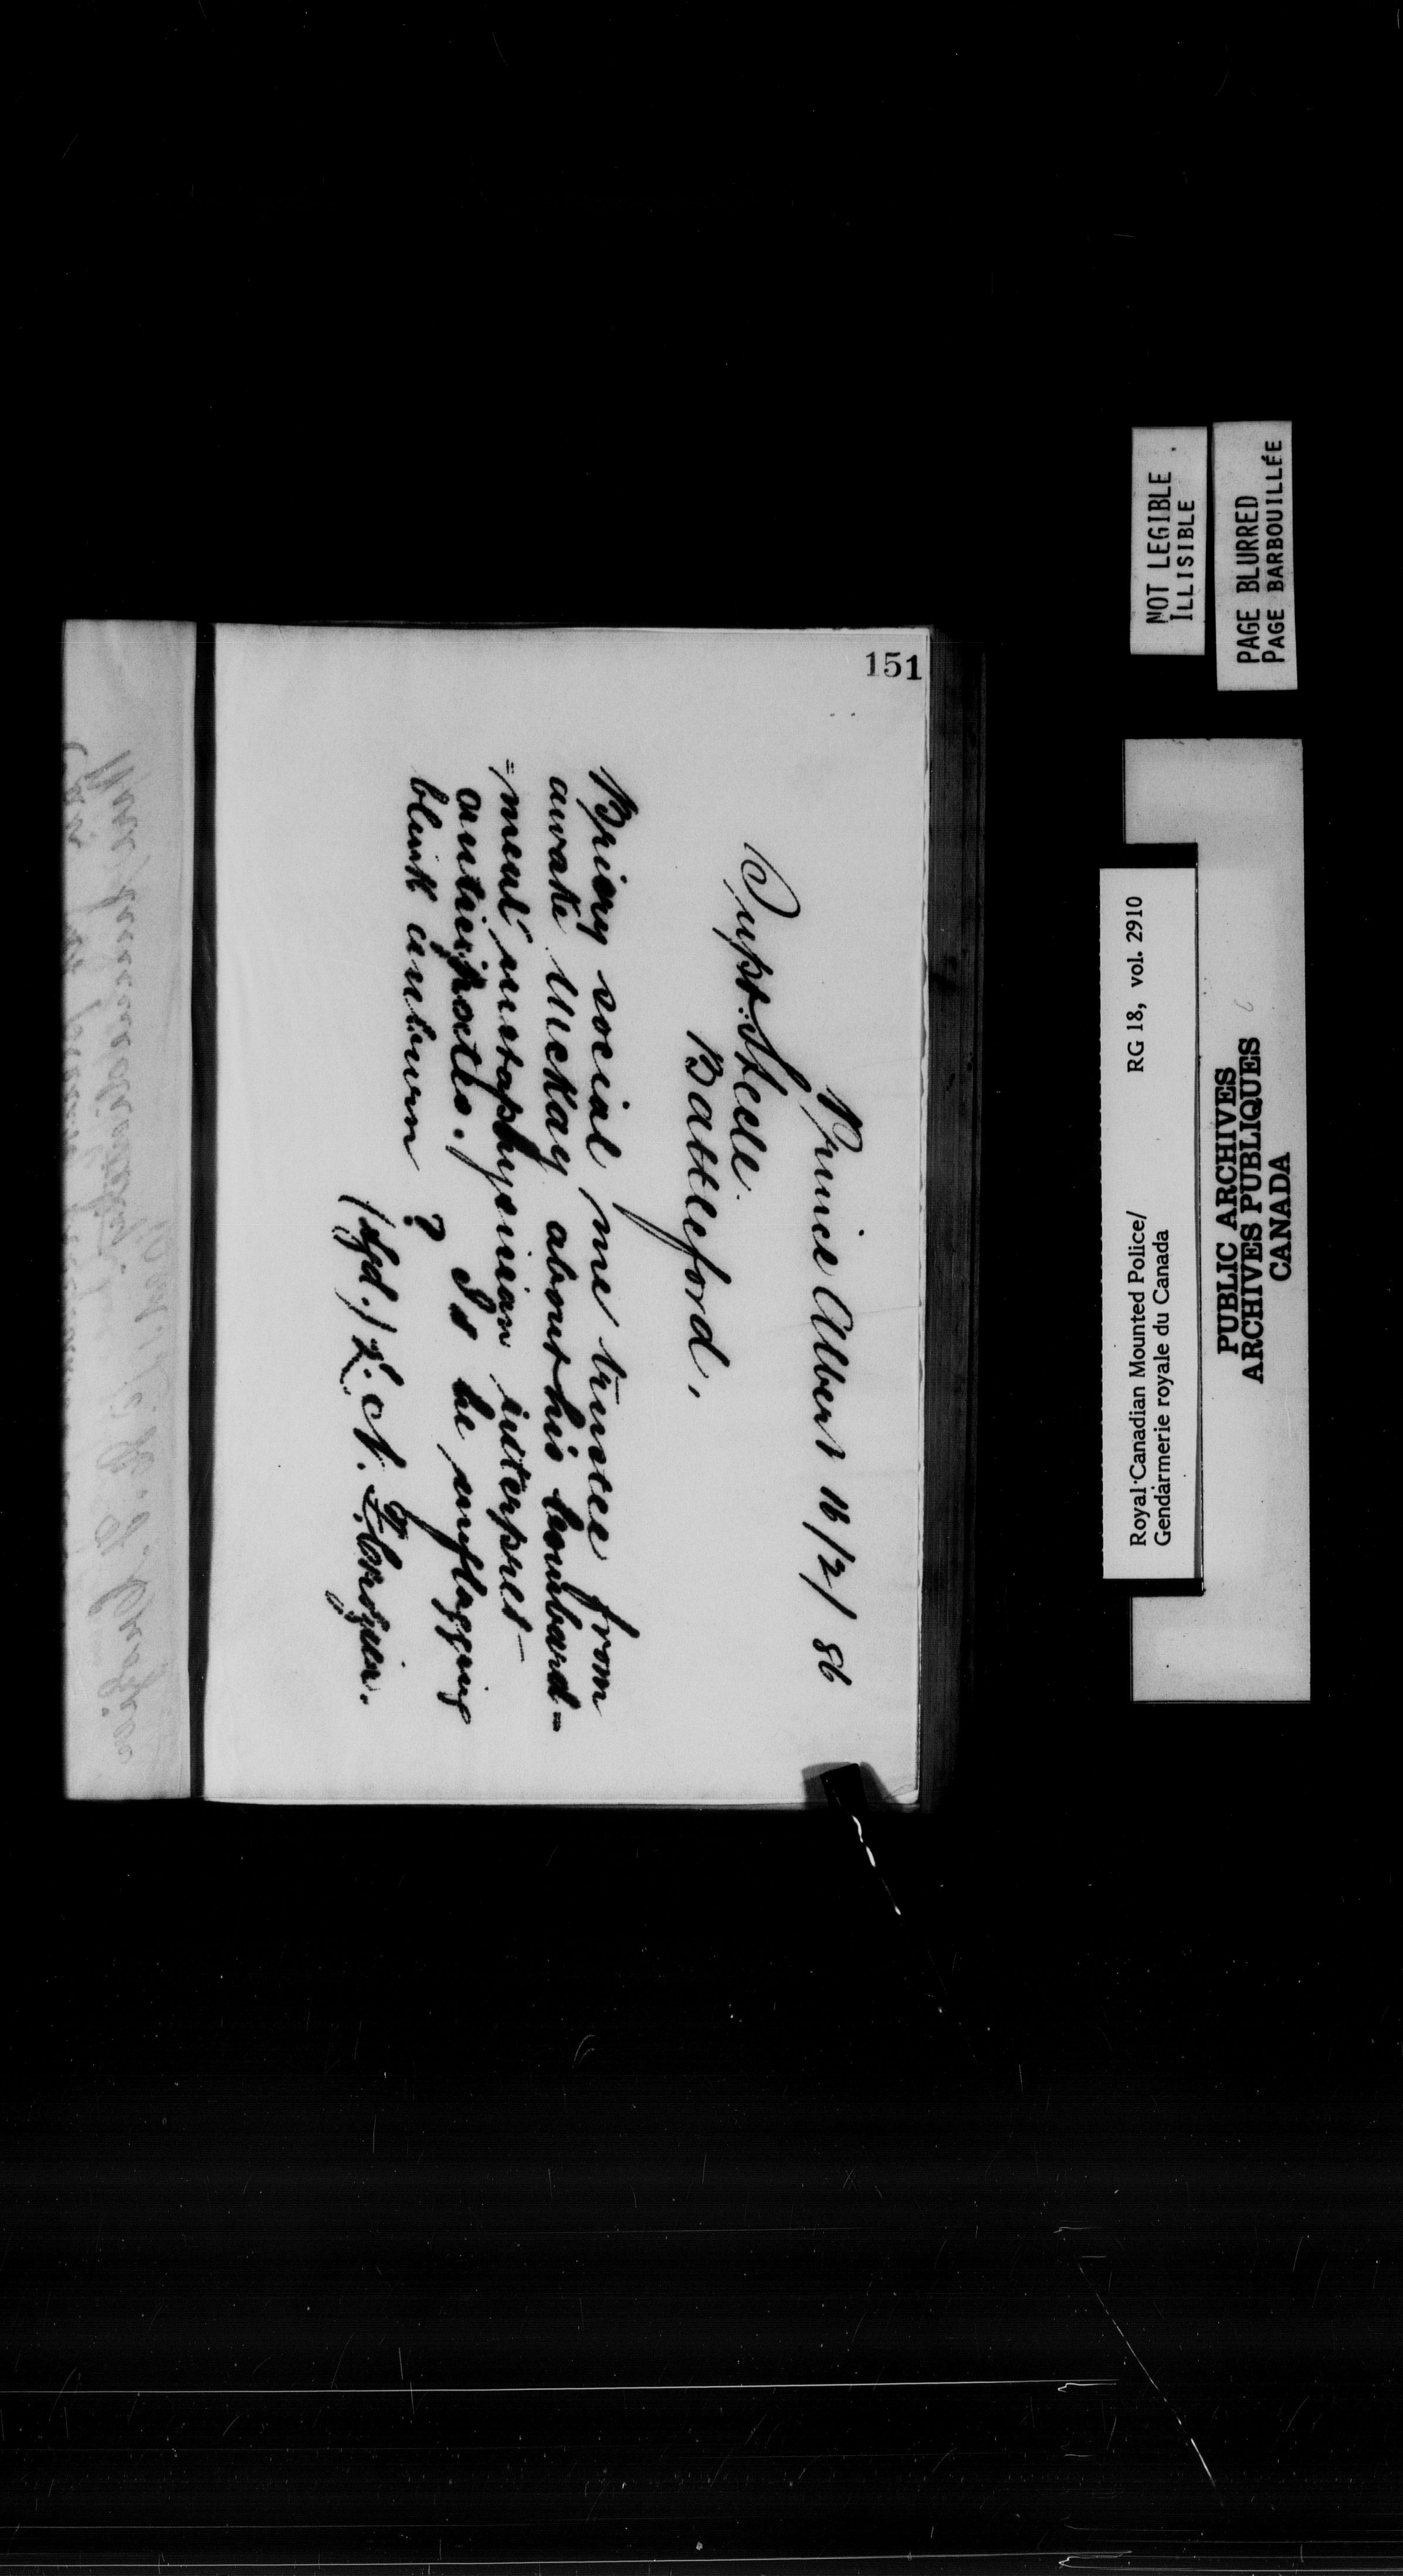 151
Prince Albert 16/2/86
Supt. Steele.
Battleford.
Briony social me trustee from
awake McKay about his bombard=
=ment interpret-
antiispoctes. Is he unflagging
blink auburn ?
(sgd.) L. N. F. Crozier.
NOT LEGIBLE
ILLISIBLE
PAGE BLURRED
PAGE BARBOUILLÉE
Royal Canadian Mounted Police/ RG 18, vol. 2910
Gendarmerie royale du Canada
PUBLIC ARCHIVES
ARCHIVES PUBLIQUES
CANADA